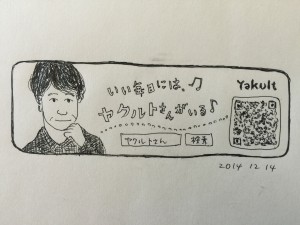 いい毎日には、♫
ヤクルトさんがいる♪
Yakult
ヤクルトさん 検索
2014 12 14